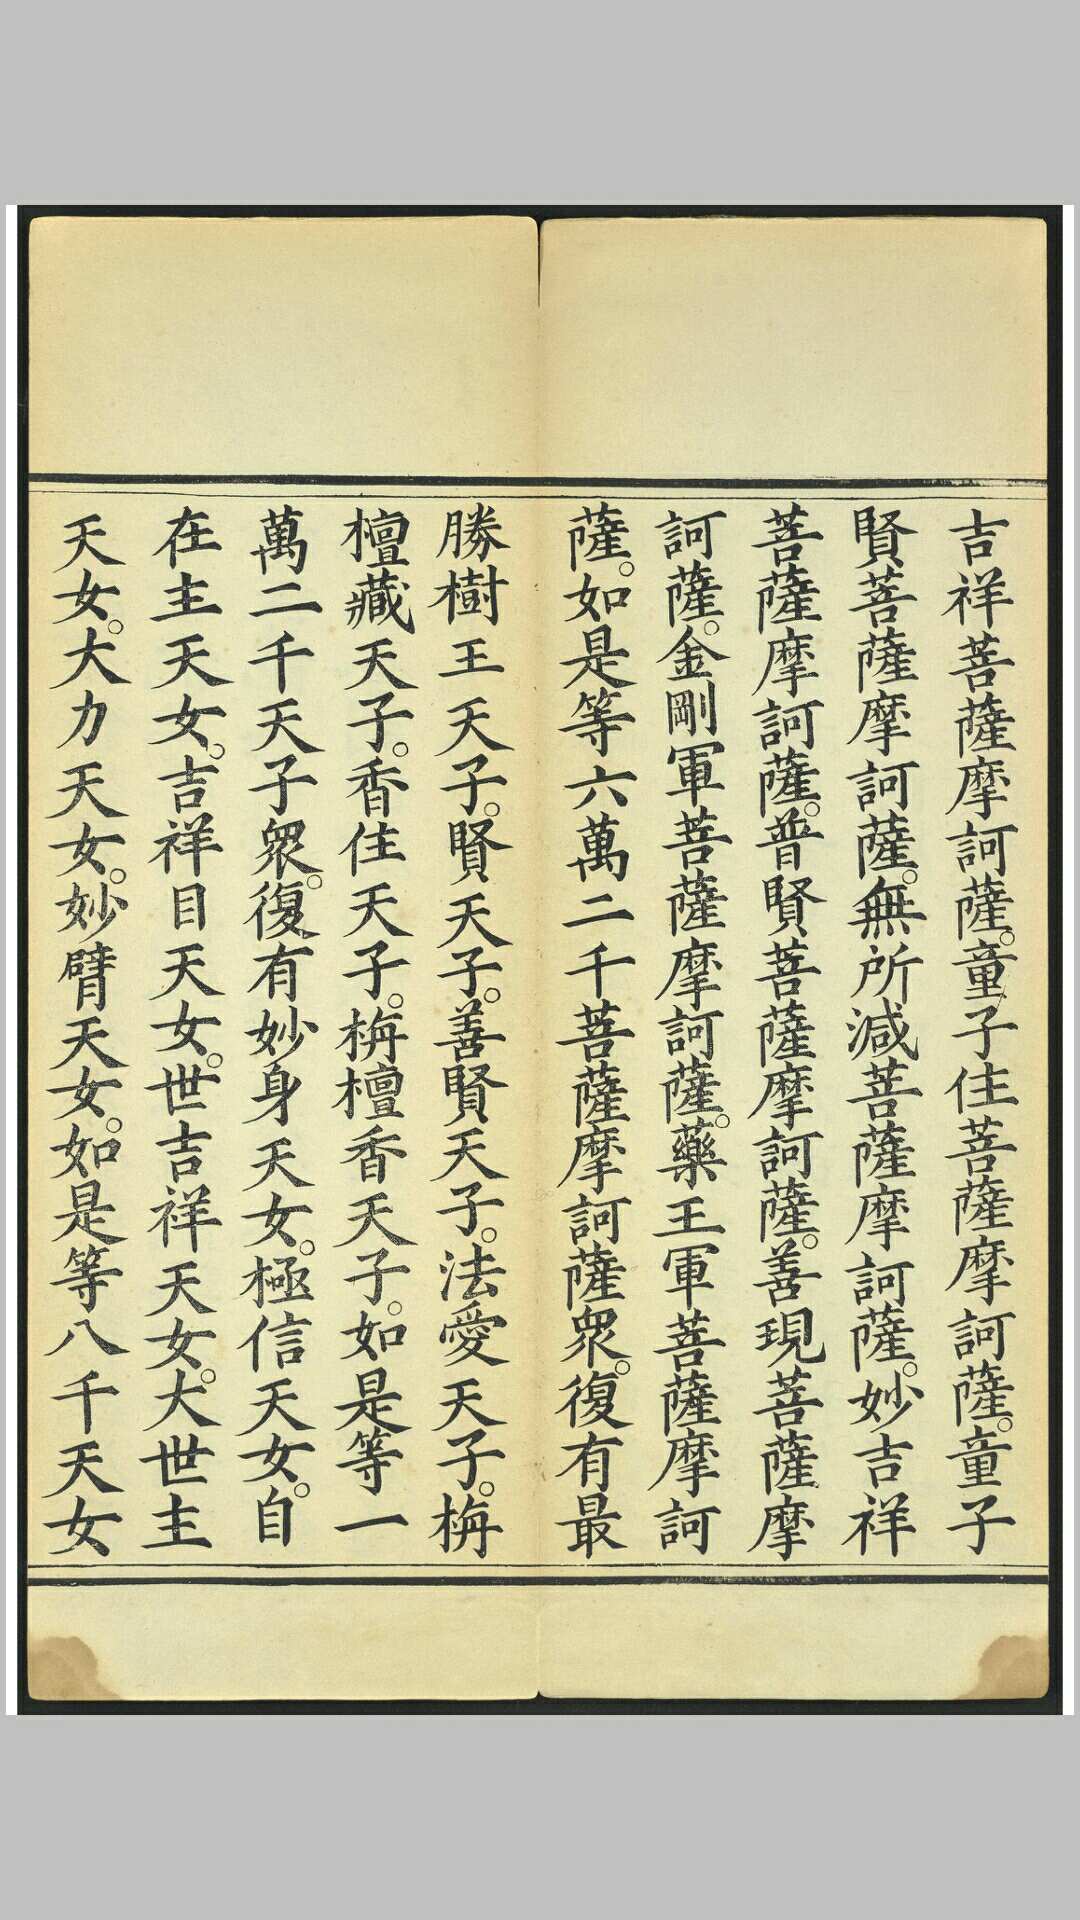 吉祥菩薩摩訶薩。童子住菩薩摩訶薩。童子
賢菩薩摩訶薩。無所減菩薩摩訶薩。妙吉祥
菩薩摩訶薩。普賢菩薩摩訶薩。善現菩薩摩
訶薩。金剛軍菩薩摩訶薩。藥王軍菩薩摩訶
薩。如是等六萬二千菩薩摩訶薩衆。復有最
勝樹王天子。賢天子。善賢天子。法愛天子。栴
檀藏天子。香住天子。栴檀香天子。如是等一
萬二千天子衆。復有妙身天女。極信天女。自
在主天女。吉祥目天女。世吉祥天女。大世主
天女。大力天女。妙臂天女。如是等八千天女